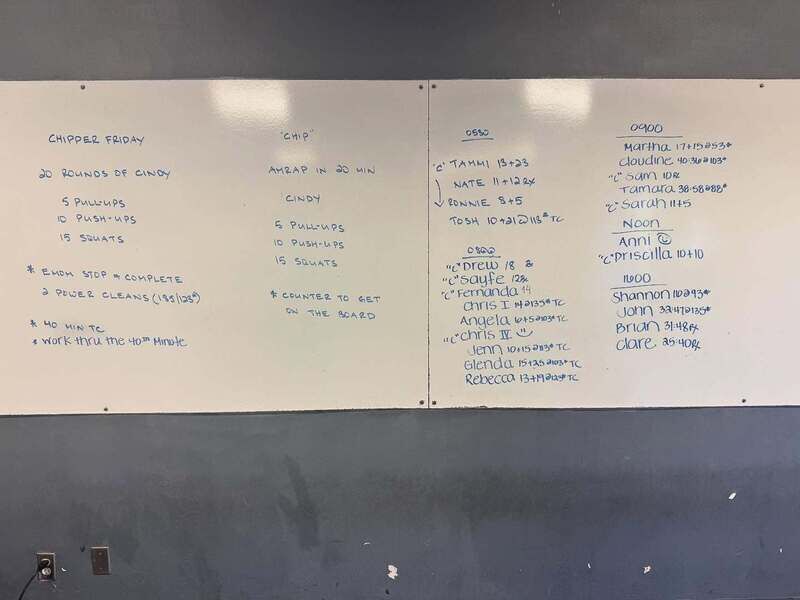 CHIPPER FRIDAY
20 ROUNDS OF CINDY
5 PULL-UPS
10 PUSH-UPS
15 SQUATS
* EMOM STOP & COMPLETE
2 POWER CLEANS (185/123#)
* 40 MIN TC
* WORK thru the 40th Minute
"CHIP"
AMRAP IN 20 MIN
CINDY
5 PULL-UPS
10 PUSH-UPS
15 SQUATS
* COUNTER TO GET
ON THE BOARD
0530
"C" TAMMI 13+23
NATE 11+12 Rx
RONNIE 8+5
TOSH 10+21@113# TC
"C" Drew 18
"C" Sayfe 12
"C" Fernanda 14
Chris I 14@135# TC
Angela 10+5@103# TC
"C" Chris IV
Jenn 10+15@113# TC
Glenda 15+25@103# TC
Rebecca 13+19@123# TC
0900
Martha 17+15@53#
Cloudine 40:36@103#
"C" Sam 10 Rx
Tamara 38:58@88#
"C" Sarah 11+5
Noon
Anni
"C" Driscilla 10+10
1600
Shannon 11@93#
John 32:47@135#
Brian 31:48 Rx
Clare 25:40 Rx